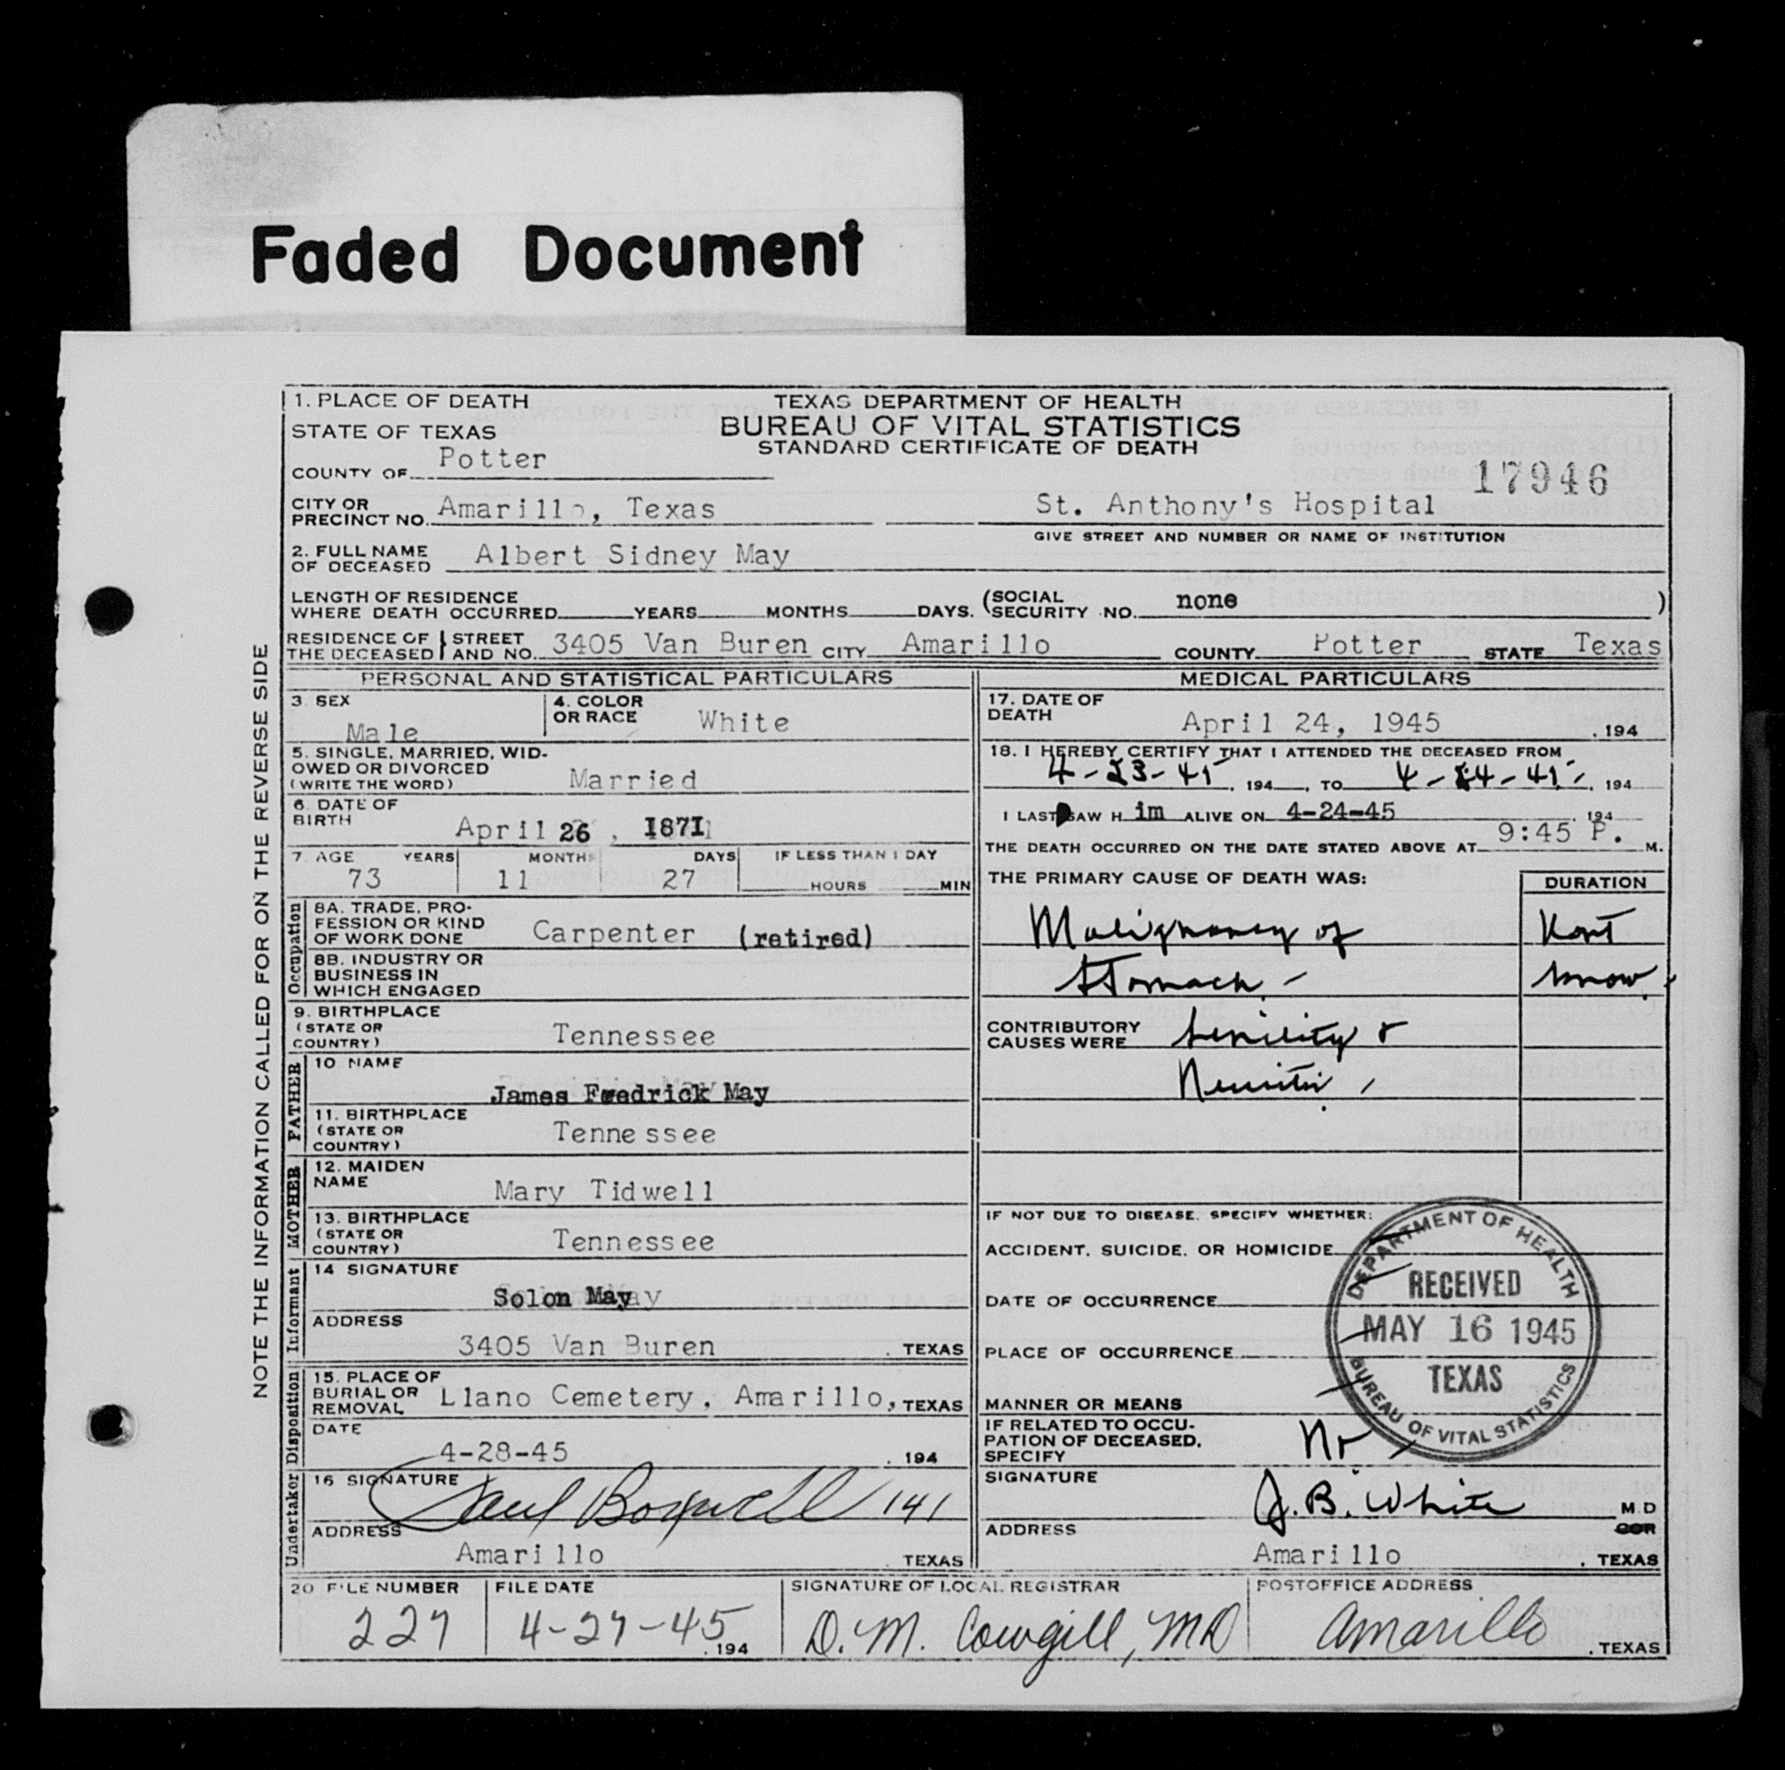 Faded Document
NOTE THE INFORMATION CALLED FOR ON THE REVERSE SIDE
TEXAS DEPARTMENT OF HEALTH
BUREAU OF VITAL STATISTICS
STANDARD CERTIFICATE OF DEATH
17946
1. PLACE OF DEATH
STATE OF TEXAS
COUNTY OF Potter
CITY OR PRECINCT NO. Amarillo, Texas St. Anthony's Hospital
GIVE STREET AND NUMBER OR NAME OF INSTITUTION
2. FULL NAME OF DECEASED Albert Sidney May
LENGTH OF RESIDENCE WHERE DEATH OCCURRED YEARS MONTHS DAYS. (SOCIAL SECURITY NO. none )
RESIDENCE OF THE DECEASED STREET AND NO. 3405 Van Buren CITY Amarillo COUNTY Potter STATE Texas
PERSONAL AND STATISTICAL PARTICULARS
3. SEX Male
4. COLOR OR RACE White
5. SINGLE, MARRIED, WIDOWED OR DIVORCED (WRITE THE WORD) Married
6. DATE OF BIRTH April 26, 1871
7. AGE YEARS MONTHS DAYS IF LESS THAN 1 DAY
73 11 27 HOURS MIN
Occupation
8A. TRADE, PROFESSION OR KIND OF WORK DONE Carpenter (retired)
8B. INDUSTRY OR BUSINESS IN WHICH ENGAGED
9. BIRTHPLACE (STATE OR COUNTRY) Tennessee
FATHER
10 NAME James Fredrick May
11. BIRTHPLACE (STATE OR COUNTRY) Tennessee
MOTHER
12. MAIDEN NAME Mary Tidwell
13. BIRTHPLACE (STATE OR COUNTRY) Tennessee
Informant
14 SIGNATURE Solon May
ADDRESS 3405 Van Buren , TEXAS
Disposition
15. PLACE OF BURIAL OR REMOVAL Llano Cemetery, Amarillo, TEXAS
DATE 4-28-45 , 194
Undertaker
16 SIGNATURE Paul Boxwell 141
ADDRESS Amarillo , TEXAS
MEDICAL PARTICULARS
17. DATE OF DEATH April 24, 1945 , 194
18. I HEREBY CERTIFY THAT I ATTENDED THE DECEASED FROM
4-23-45, 194 , TO 4-24-45, 194
I LAST SAW H im ALIVE ON 4-24-45 194
THE DEATH OCCURRED ON THE DATE STATED ABOVE AT 9:45 P. M.
THE PRIMARY CAUSE OF DEATH WAS: DURATION
Malignancy of Dont
Stomach - know.
CONTRIBUTORY CAUSES WERE Senility &
Neuritis
IF NOT DUE TO DISEASE, SPECIFY WHETHER:
ACCIDENT, SUICIDE, OR HOMICIDE
DATE OF OCCURRENCE
PLACE OF OCCURRENCE
MANNER OR MEANS
DEPARTMENT OF HEALTH
RECEIVED
MAY 16 1945
TEXAS
BUREAU OF VITAL STATISTICS
IF RELATED TO OCCUPATION OF DECEASED, SPECIFY No
SIGNATURE J. B. White M.D
COR
ADDRESS Amarillo , TEXAS
20 FILE NUMBER FILE DATE SIGNATURE OF LOCAL REGISTRAR POSTOFFICE ADDRESS
227 4-27-45 , 194 D. M. Cowgill, MD Amarillo , TEXAS